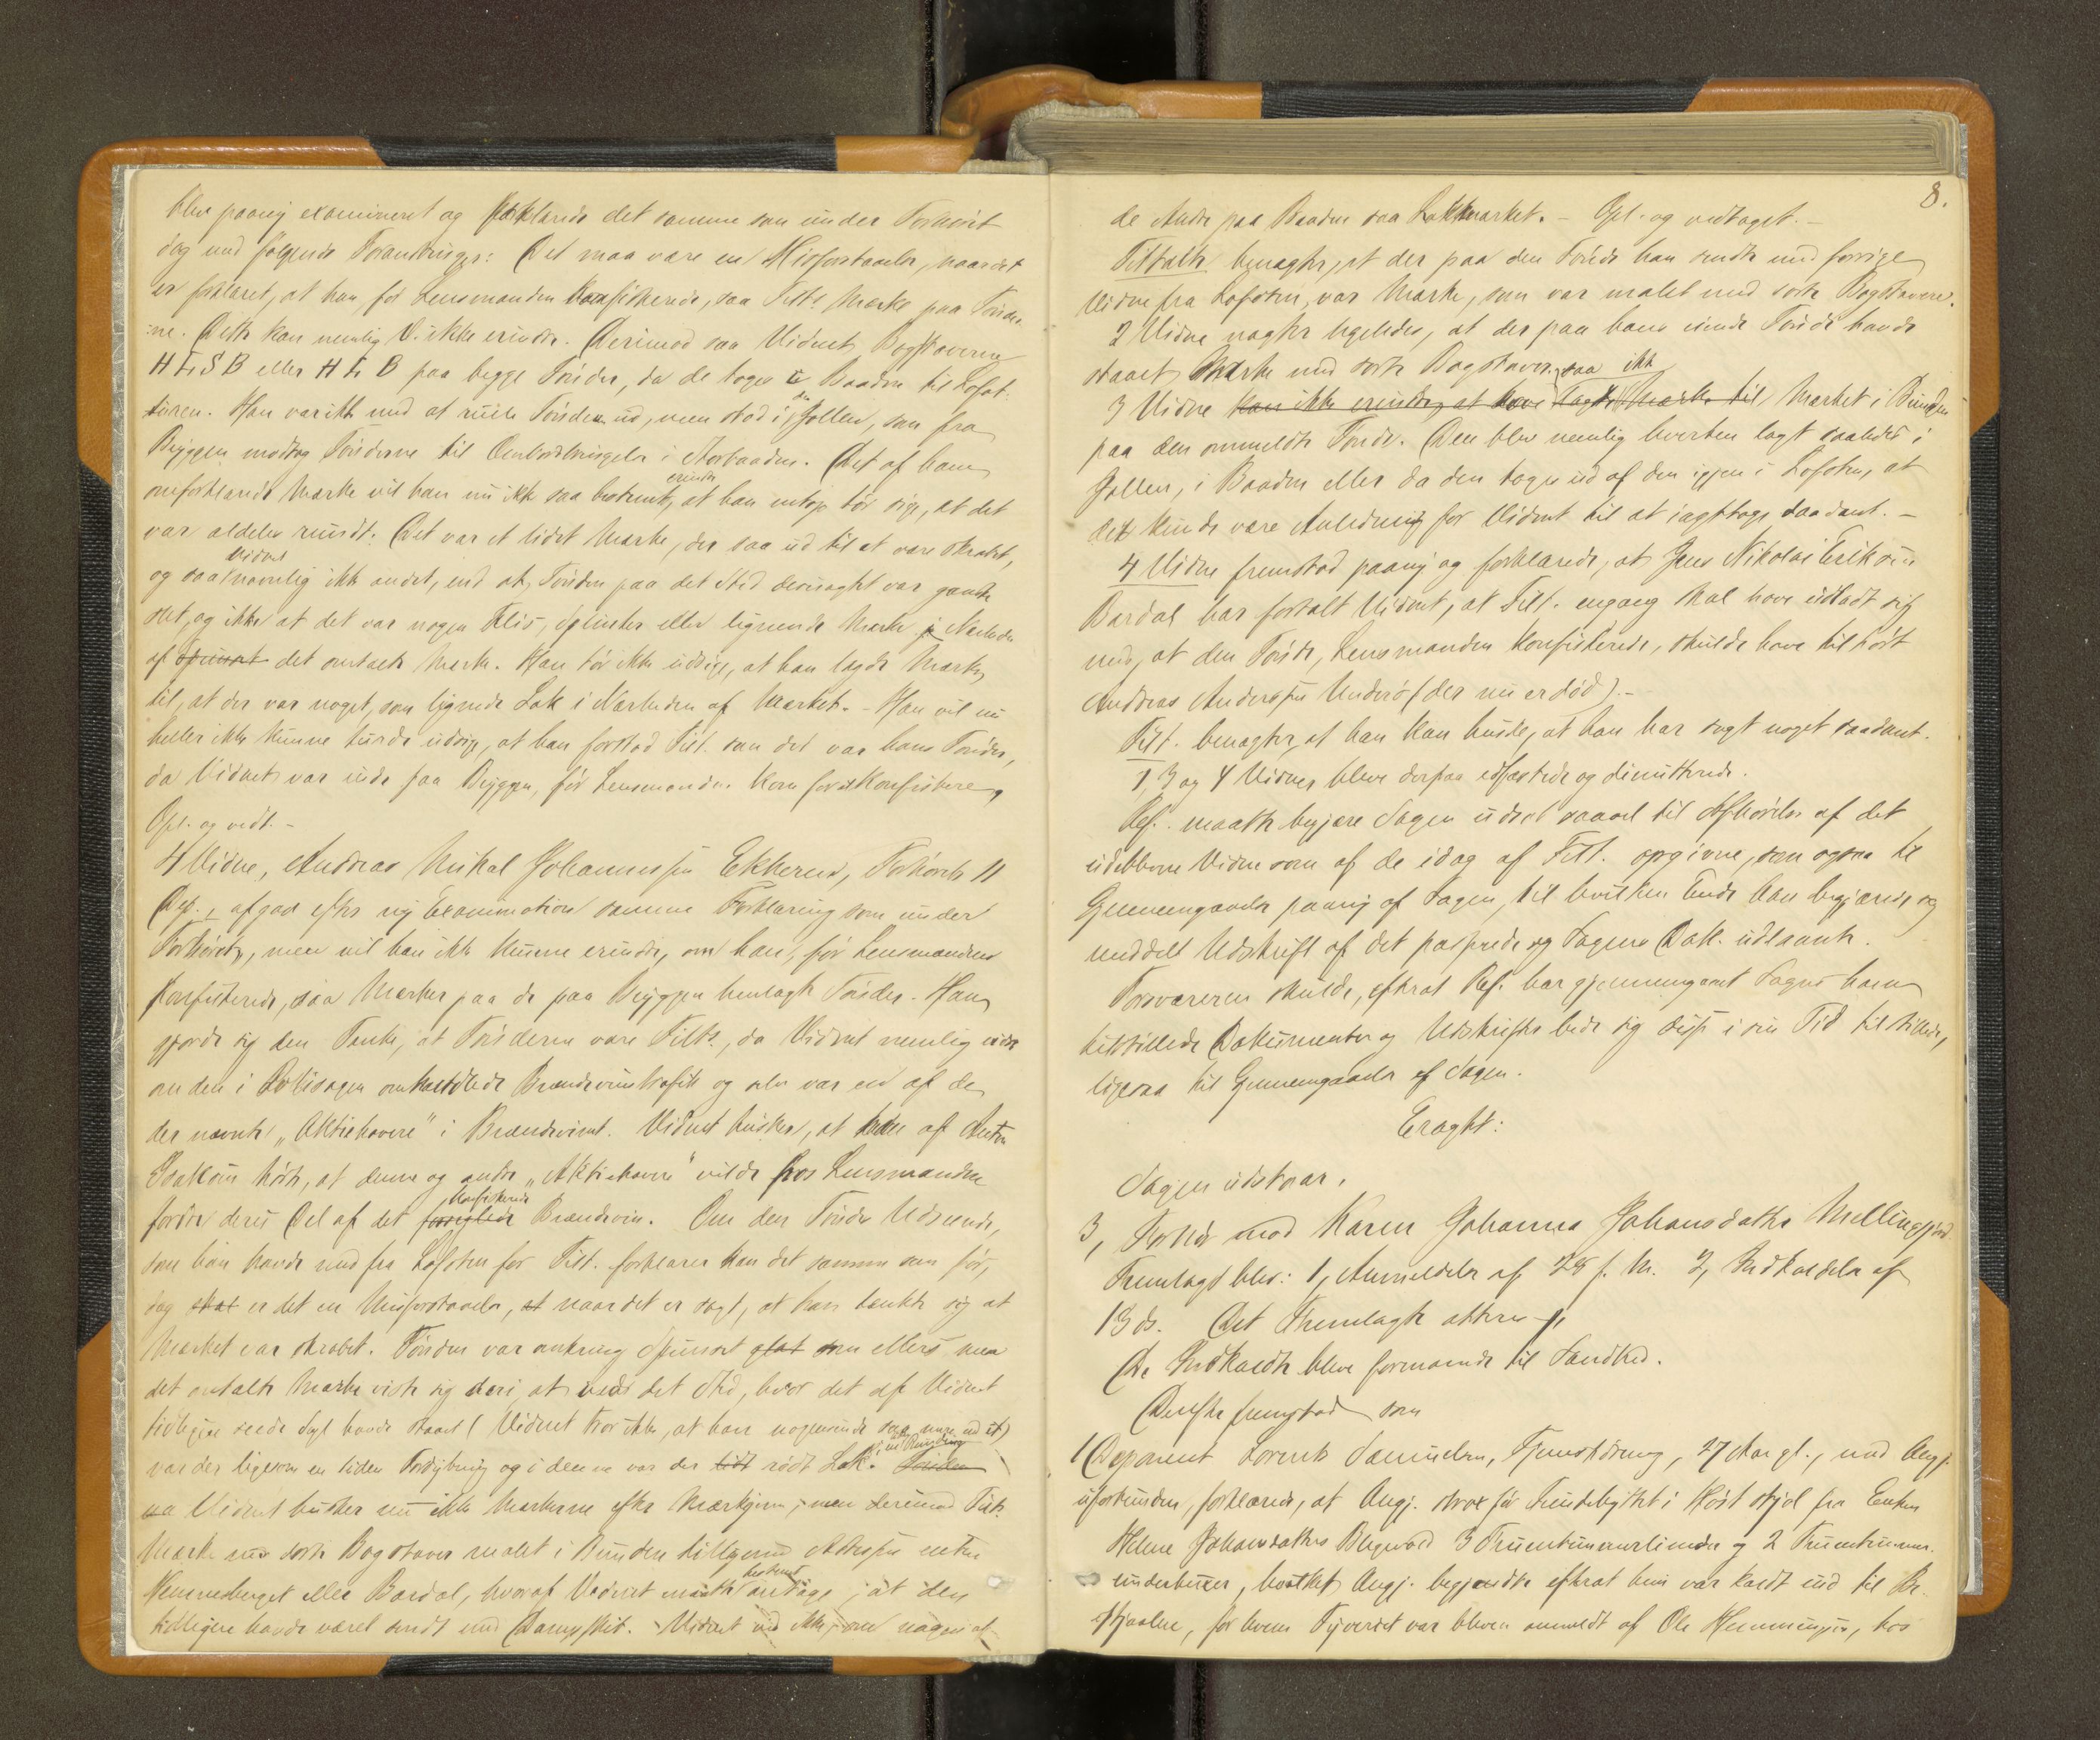 blev paany examineret og forklarede det samme som under Forhøret
dog med følgende Forandringer: Det maa være en Misforstaaelse, naar det
er forklaret, at han, før Lensmanden konfiskerede, saa Tilts. Mærke paa Tønder
:ne. Dette kan nemlig V. ikke erindre. Derimod saa Vidnet Bogstaverne
H E S B eller H E B paa begge Tønder, da de toges i Baaden til Lofot-
turen. Han var ikke med at rulle Tønden ud, men stod i den Jollen, som fra
Bryggen modtog Tønderne til Ombordbringelse i Storbaaden. Det af ham
omforklarede Mærke vil han nu ikke saa bestemt erindre, at han netop tør sige, at det
var aldeles rundt. Det var et lidet Mærke, der saa ud til at være skrabet,
og saa Vidnet navnlig ikke andet, end at Tønden paa det Sted var ganske
slet, og ikke at det var nogen Flis, splinter eller lignende Mærke i Nærheden
af det omtalte Mærke. Han tør ikke udsige, at han lagde Mærke
til, at der var noget, som lignede Lak i Nærheden af Mærket. - Han vil nu
heller ikke kunne turde udsige, at han forstod Tilt. som det var hans Tønder,
da Vidnet var inde paa Bryggen, før Lensmanden kom for at konfiskere,
Opl. og vedt. -
4 Vidne, Andreas Mikal Johannessen Ekkeren, Forhørets 11
Dep., afgav efter ny Examination samme Forklaring som under
Forhøret, men vil han ikke kunne erindre, om han, før Lensmanden
konfiskerede, saa Mærker paa de paa Bryggen henlagte Tønder. Han
gjorde sig den Tanke, at Tønderne vare Tilts., da Vidnet nemlig vidste
om den i omhandlede Brændevinstrafik og selv var en af de
der nævnte "Aktiehavere" i Brændevinet. Vidnet husker, at have af Anton
Isaksen hørt, at denne og andre "Aktiehavere" vilde hos Lensmanden
fordre deres Del af det forseglede konfiskerede Brændevin. Om den Tønde Udsunde,
som han havde med fra Lofoten for Tilt. forklarer han det samme som før,
dog skal er det en Misforstaaelse, at naar det er sagt, at han tænkte sig at
Mærket var skrabet. Tønden var omkring Spunset glat som ellers, men
det omtalte Mærke viste sig deri, at ved det Sted, hvor det af Vidnet
tidligere seede Segl havde staaet (Vidnet tror ikke, at han nogensinde
var der ligesom en liden Fordybning og i denne var der lidt rødt Lak.
Vidnet husker nu ikke Mærkerne efter Mærkjern, men derimod Tilts.
Mærke med sorte Bogstaver malet i Bunden tilligemed Adresse enten
Hemnesberget eller Bardal, hvoraf Vidnet maatte bestemt antage, at den
tidligere havde været sendt med Dampskib. Vidnet ved ikke, om nogen af
8.
de Andre paa Baaden saa Lakmærket. - Opl. og vedtaget. -
Tiltalte benægter, at der paa den Tønde han sendte med forrige
Vidne fra Lofoten, var Mærke, som var malet med sorte Bogstaver.
2 Vidne nægter ligeledes, at der paa hans ene Tønde havde
staaet Mærke med sorte Bogstaver.
3 Vidne kan ikke erindre at have lagt Mærke til saa ikke Mærket i Bunden
paa den ommeldte Tønde. Den blev nemlig hverken lagt saaledes i
Jollen, i Baaden eller da den toges ud af den igjen i Lofoten, at
det kunde være Anledning for Vidnet til at iagttage saadant. -
4 Vidne fremstod paany og forklarede, at Jens Nikolai Eriksen
Bardal har fortalt Vidnet, at Tilt. engang skal have udladt sig
med, at den Tønde, Lensmanden konfiskerede, skulde have tilhørt
Andreas Andersen Underø (der nu er død). -
Tilt. benægter, at han kan huske, at han har sagt noget saadant.
1, 3 og 4 Vidner bleve derpaa edfæstede og dimitterede.
Ref. maatte begjære Sagen udsat saavel til Afhørelse af det
udeblevne Vidne som af de idag af Tilt. opgivne, som ogsaa til
Gjennemgaaelse paany af Sagen, til hvilken Ende han begjærede sig
meddelt Udskrift af det passerede og Sagens Dok. udlaante.
Forsvareren skulde, efterat Ref. har gjennemgaaet Sagen, ham
tilstillede Dokumenter og Udskrifter bede sig disse i sin Tid tilstillede,
ligesaa til Gjennemgaaelse af Sagen.
Eragtet:
Sagen udstaar.
3, Forhør mod Karen Johanna Johansdatter Mellingfjord.
Fremlagt blev: 1, Anmeldelse af 28 f. M. 2, Indkaldelse af
13 ds. Det Fremlagte
De Indkaldte bleve formanede til Sandhed.
Derefter fremstod som
1 Deponent Lorents Samuelsen, Tjenestdreng, 27 Aar gl., med Angj.
uforbunden, forklarede, at Angj. strax før i Høst stjal fra Enken
Helene Johansdatter 3 Fruentimmerlinneder og 2 Fruentimmer-
underbuxer, hvilket Angj. efterat hun var kaldt ind til Be-
stjaalne, for hvem Tyveriet var bleven anmeldt af Ole Henningsen, hos